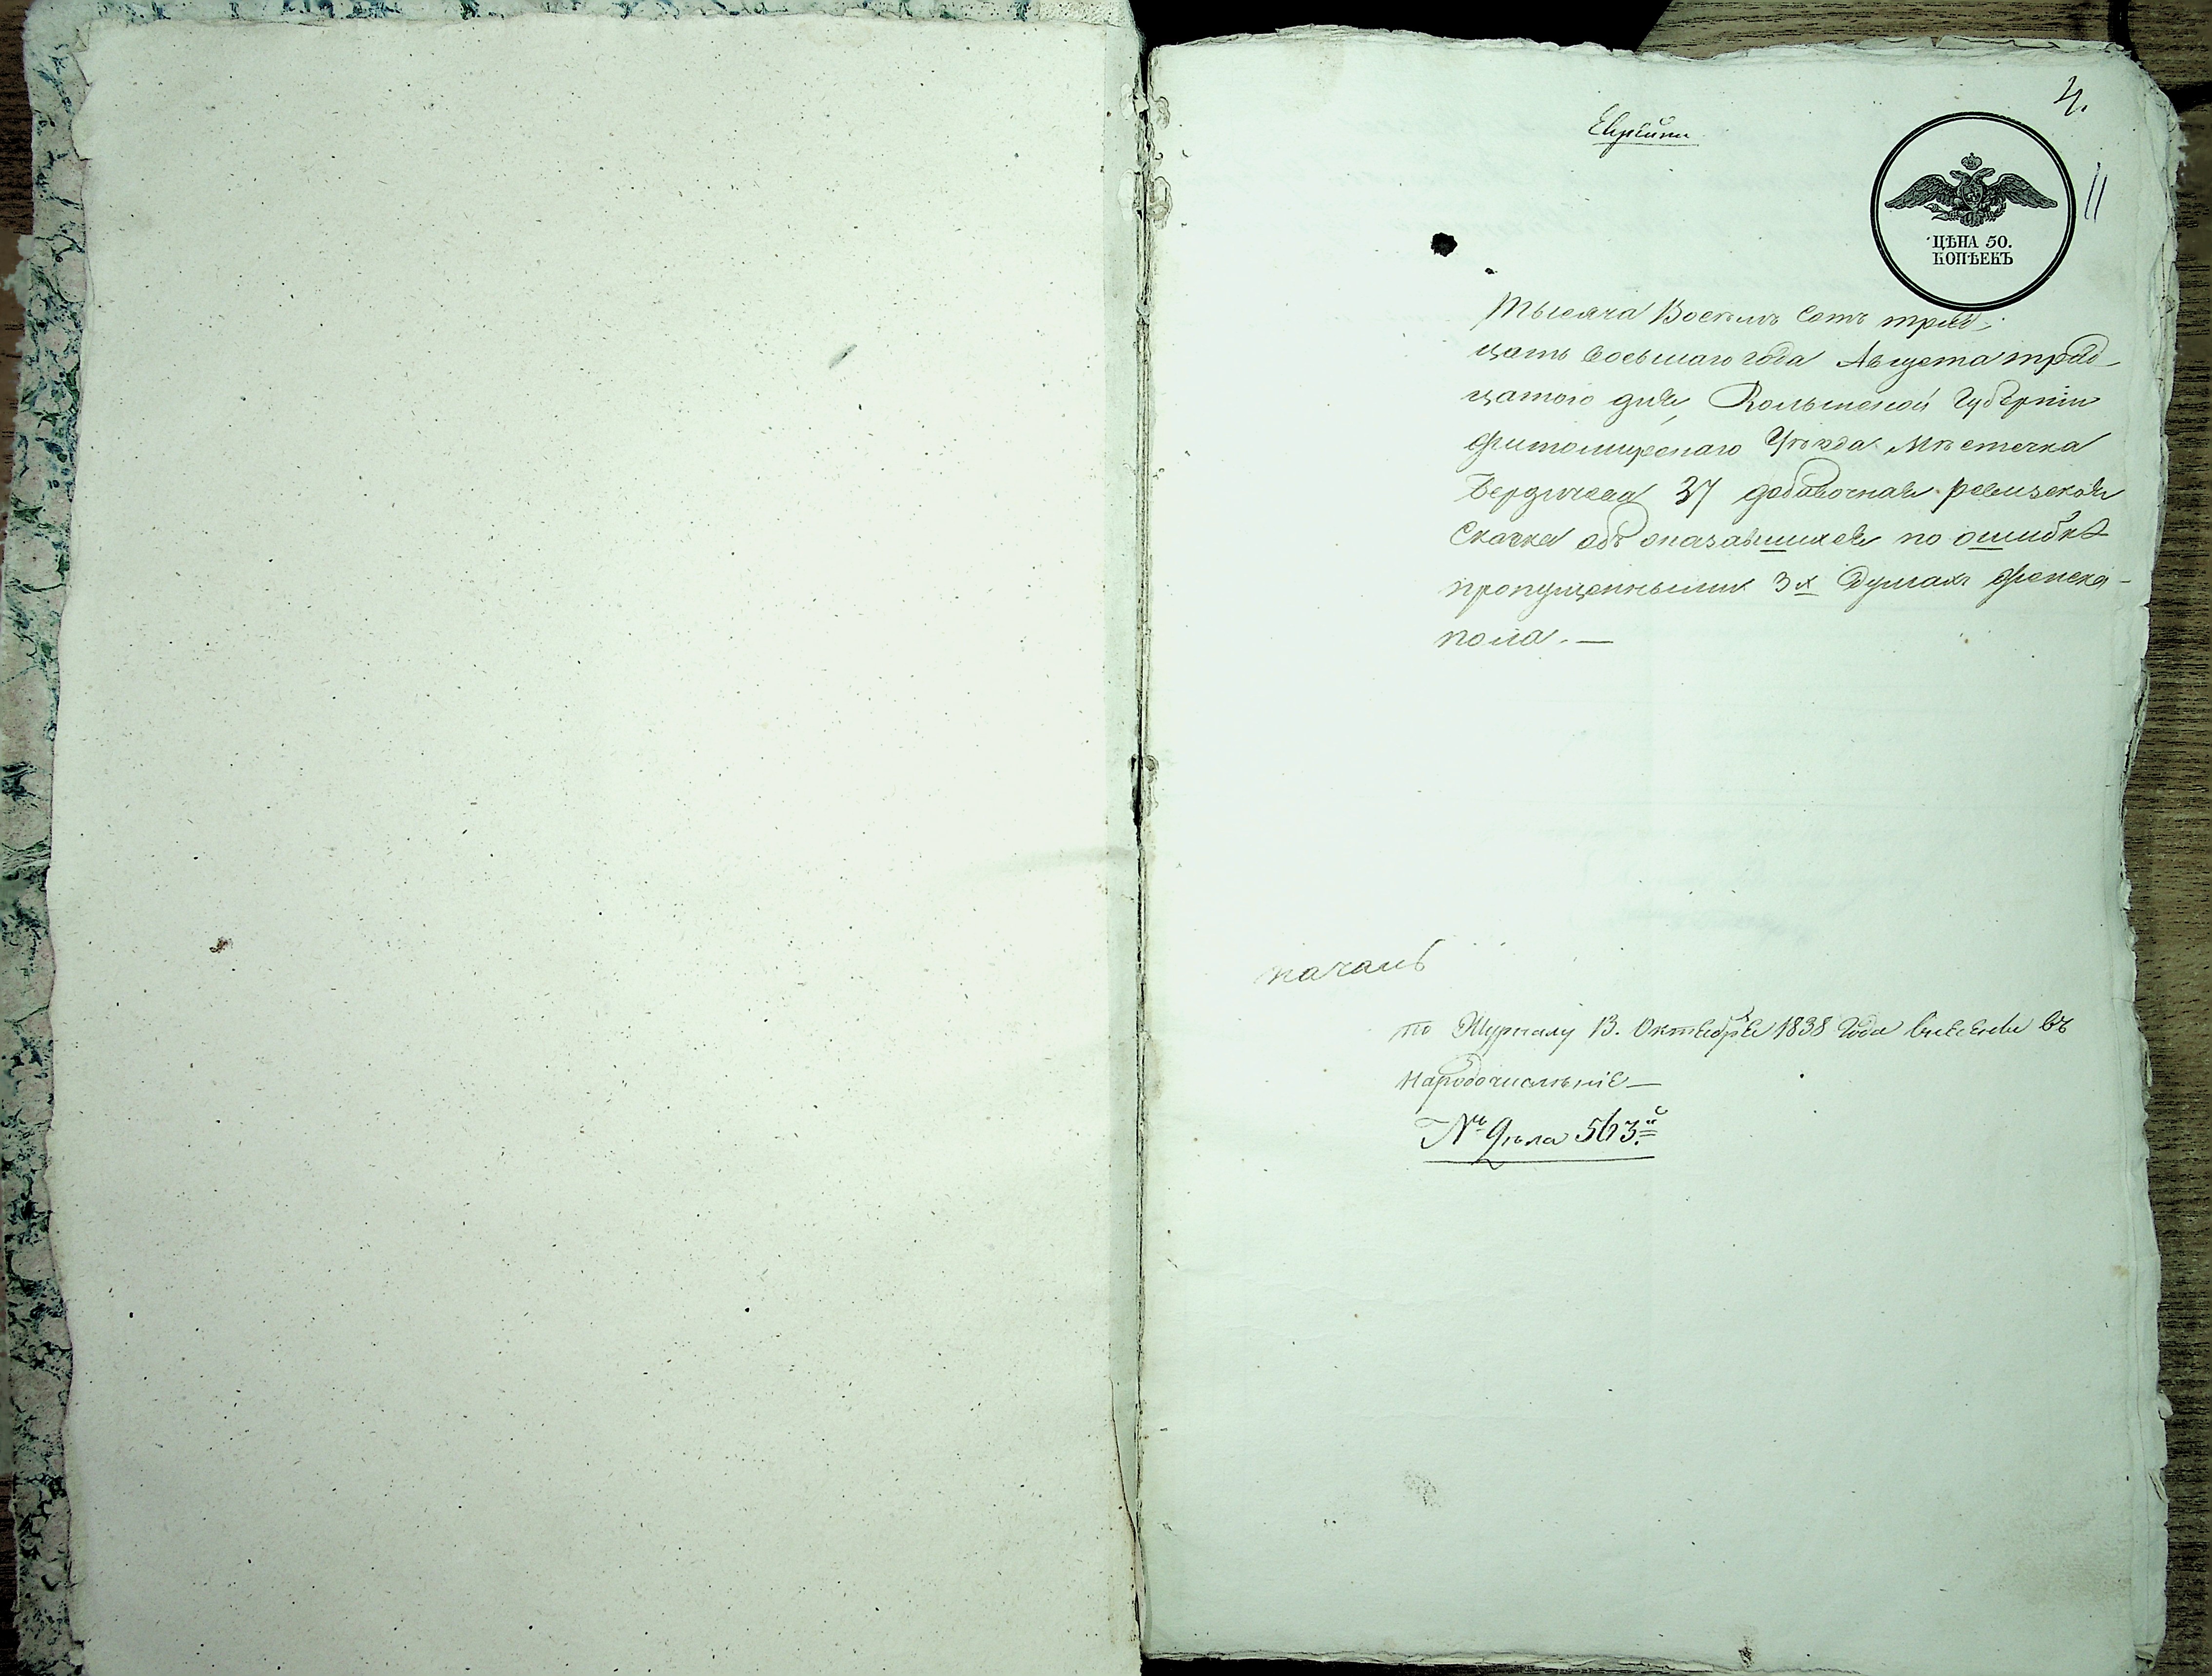 4.
Еврейки
11
ЦѢНА 50.
КОПѢЕКЪ
Тысяча Восемъ Сотъ трид-
цать Восьмаго года Августа трид-
цатого дня, Волынской Губерніи
Житомирскаго Уѣзда Мѣстечка
Бердичева 37 добавочная ревизская
Сказка объ оказавшихся по ошибкѣ
пропущенными 3х Душах женска-
пола. —
по Журналу 13. Октября 1838 Года внесены въ
народочисленіе —
№ Дѣла 563й